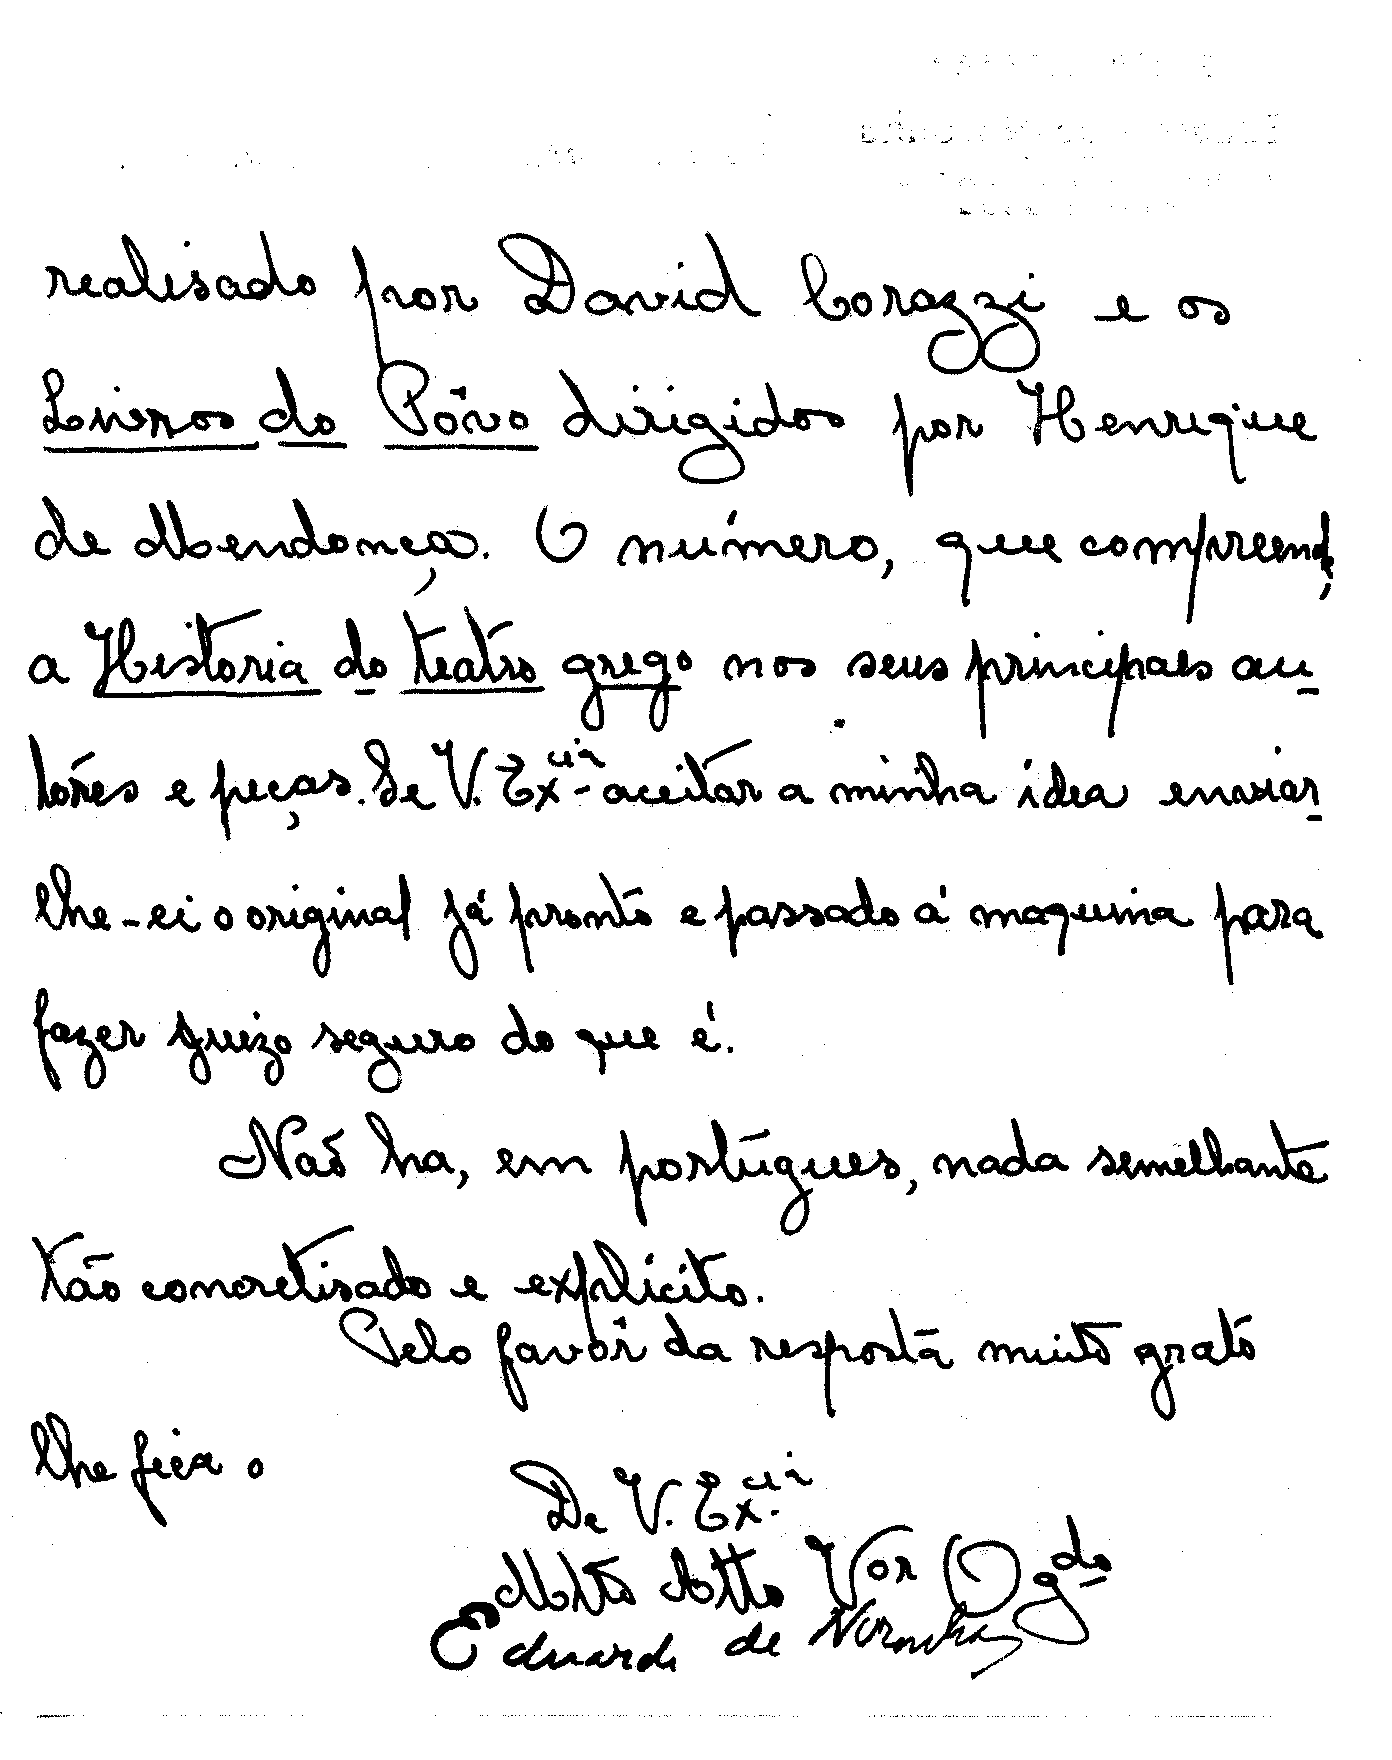 realisado por David Corazzi e os
Livros do Pôvo dirigidos por Henrique
de Mendonça. O número, que compreende,
a Historia do teatro grego nos seus principaes au-
tôres e peças. Se V. Ex.cia aceitar a minha idea enviar-
lhe-ei o original já pronto e passado á maquina para
fazer juizo seguro do que é.
Não ha, em português, nada semelhante
tão concretisado e explicito.
Pelo favôr da resposta muito grato
lhe fica o
De V. Ex.cia
Mto Atto Vor Ogdo
Eduardo de Noronha